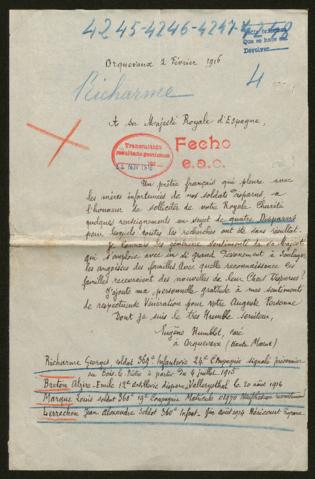 4245-4246-4247-4248
Orquevaux 2 Février 1916
Richarme
4
A Sa Majesté Royale d'Espagne,
Fecho
e.a.c.
Un prêtre français qui pleure avec
les mères infortunées de nos soldats disparus, a
l'honneur de solliciter de votre Royale Charité
quelques renseignements au sujet de quatre Disparus
pour lesquels toutes les recherches ont été sans résultat.
Je connais les généreux sentiments de Sa Majesté
qui s'emploie avec un si grand dévouement à soulager
les angoisses des familles. Avec quelle reconnaissance les
familles recevraient des nouvelles de leur Cher Disparus!
J'ajoute ma personnelle gratitude à mes sentiments
de respectueuse Vénération pour Votre Auguste Personne
Dont je suis le très Humble Serviteur,
Eugène Humblot, curé
à Orquevaux (Haute Marne)
Richarme Georges soldat 369e Infanterie 24e Compagnie signalé prisonnier
au Bois-le-Prêtre à partir du 4 juillet 1915
Breton Alzire-Emile 12e artillerie disparu 20 août 1914
Marque Louis soldat 360e 19e Compagnie Matricule
Jean Alexandre Soldat 360e Infant. fin août 1914